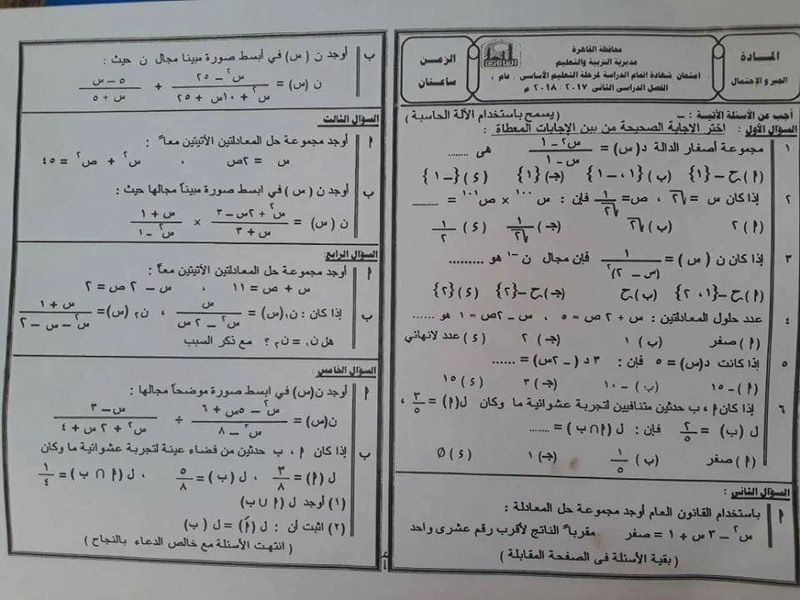 المادة
الجبر و الإحتمال
محافظة القاهرة
مديرية التربية والتعليم
امتحان شهادة اتمام الدراسة لمرحلة التعليم الأساسى ، عام ،
الفصل الدراسى الثانى ٢٠١٧ / ٢٠١٨ م
الزمن
ساعتان
أجب عن الأسئلة الآتية : – ( يسمح باستخدام الآلة الحاسبة )
السؤال الأول : اختر الإجابة الصحيحة من بين الإجابات المعطاة :
١ مجموعة أصفار الدالة د( س) = (س٢ – ١) / (س – ١) هى ........
( أ ) ح – {١} ( ب ) {١ ، – ١} ( جـ ) {١} ( ء ) { – ١}
٢ إذا كان س = √٢ ، ص = ١/√٢ فإن : س١٠٠ × ص١٠١ = ______
( أ ) ٢ ( ب ) √٢ ( جـ ) ١/√٢ ( ء ) ١/٢
٣ إذا كان ن ( س ) = ١ / (س – ٢)٢ فإن مجال ن–١ هو .........
( أ ) ح – {١ ، ٢} ( ب ) ح ( جـ ) ح – {٢} ( ء ) {٢}
٤ عدد حلول المعادلتين : س + ٢ ص = ٥ ، س – ٢ص = ١ هو ......
( أ ) صفر ( ب ) ١ ( جـ ) ٢ ( ء ) عدد لانهائي
٥ إذا كانت د(س) = ٥ فإن : ٣ د ( – ٢س) = ......
( أ ) – ١٥ ( ب ) – ١٠ ( جـ ) ٣ ( ء ) ١٥
٦ إذا كان أ ، ب حدثين متنافيين لتجربة عشوائية ما وكان ل(أ) = ٣/٥ ،
ل (ب) = ٢/٥ فإن : ل ( أ ∩ ب ) = ........
( أ ) صفر ( ب ) ١/٥ ( جـ ) ١ ( ء ) Ø
السؤال الثانى :
أ باستخدام القانون العام أوجد مجموعة حل المعادلة :
س٢ – ٣ س + ١ = صفر مقرباً الناتج لأقرب رقم عشرى واحد
( بقية الأسئلة فى الصفحة المقابلة )
ب أوجد ن ( س) في أبسط صورة مبينا مجال ن حيث :
ن ( س) = (س٢ – ٢٥) / (س٢ + ١٠س + ٢٥) + (٥ – س) / (س + ٥)
السؤال الثالث
أ أوجد مجموعة حل المعادلتين الأتيتين معاً :
س = ٢ص ، س٢ + ص٢ = ٤٥
ب أوجد ن ( س ) في ابسط صورة مبيناً مجالها حيث :
ن ( س) = (س٢ + ٢س – ٣) / (س + ٣) × (س + ١) / (س٢ – ١)
السؤال الرابع
أ أوجد مجموعة حل المعادلتين الأتيتين معاً :
س + ص = ١١ ، س – ٢ ص = ٢
ب إذا كان : ن١(س) = س / (س٢ – ٢ س) ، ن٢(س) = (س + ١) / (س٢ – س – ٢)
هل ن١ = ن٢ ؟ مع ذكر السبب
السؤال الخامس :
أ أوجد ن(س) في ابسط صورة موضحاً مجالها :
ن(س) = (س٢ – ٥س + ٦) / (س٣ – ٨) ÷ (س – ٣) / (س٢ + ٢ س + ٤)
ب إذا كان أ ، ب حدثين من فضاء عينة لتجربة عشوائية ما وكان
ل ( أ) = ٣/٨ ، ل ( ب) = ٥/٨ ، ل ( أ ∩ ب) = ١/٤
(١) أوجد ل ( أ ∪ ب)
(٢) اثبت أن : ل ( أَ) = ل ( ب)
( انتهت الأسئلة مع خالص الدعاء بالنجاح )